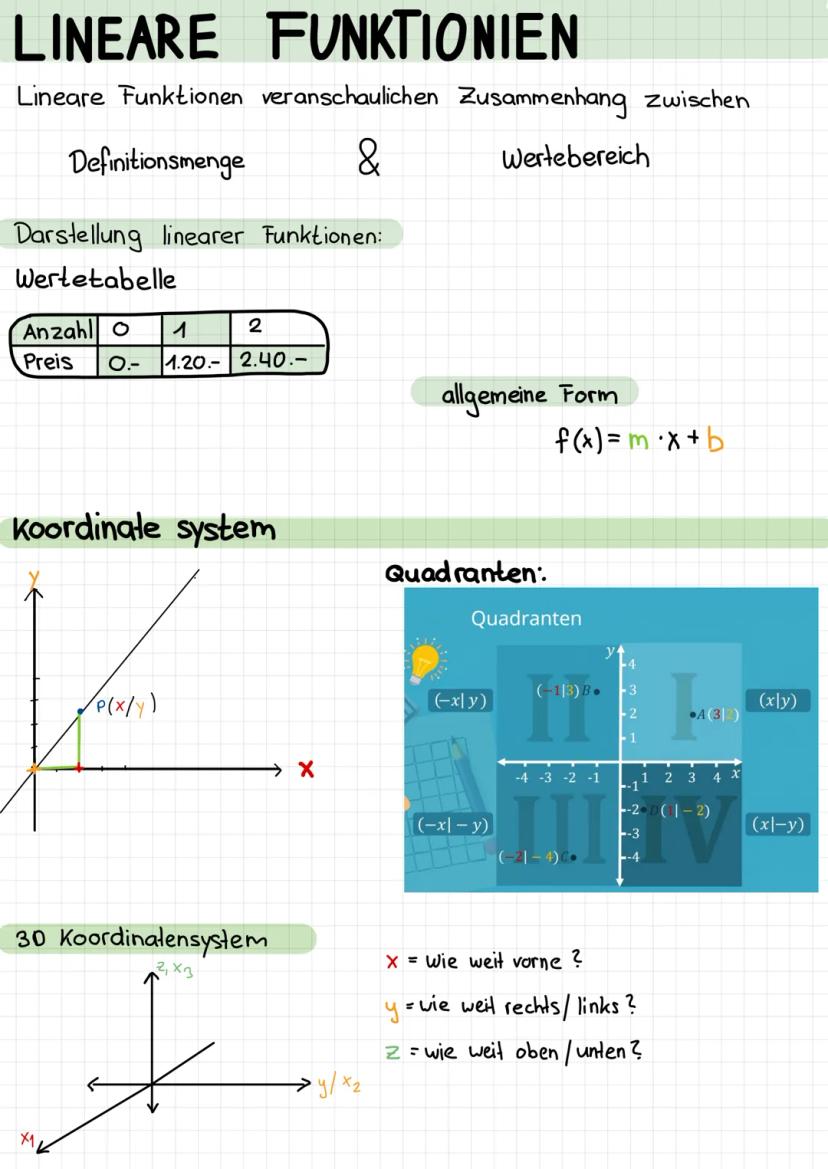 LINEARE FUNKTIONIEN
Lineare Funktionen veranschaulichen Zusammenhang zwischen
Definitionsmenge & Wertebereich
Darstellung linearer Funktionen:
Wertetabelle
Anzahl 0 1 2
Preis 0.- 1.20.- 2.40.-
allgemeine Form
f(x) = m · x + b
Koordinate system
y
P(x/y)
x
Quadranten:
Quadranten
II I
III IV
y
4
3
2
1
-4 -3 -2 -1 1 2 3 4 x
-1
-2
-3
-4
(-x|y)
(x|y)
(-x|-y)
(x|-y)
(-1|3) B
A(3|2)
(-2|-4) C
D(1|-2)
3D Koordinatensystem
z, x3
y/x2
x1
x = wie weit vorne?
y = wie weit rechts/links?
z = wie weit oben/unten?